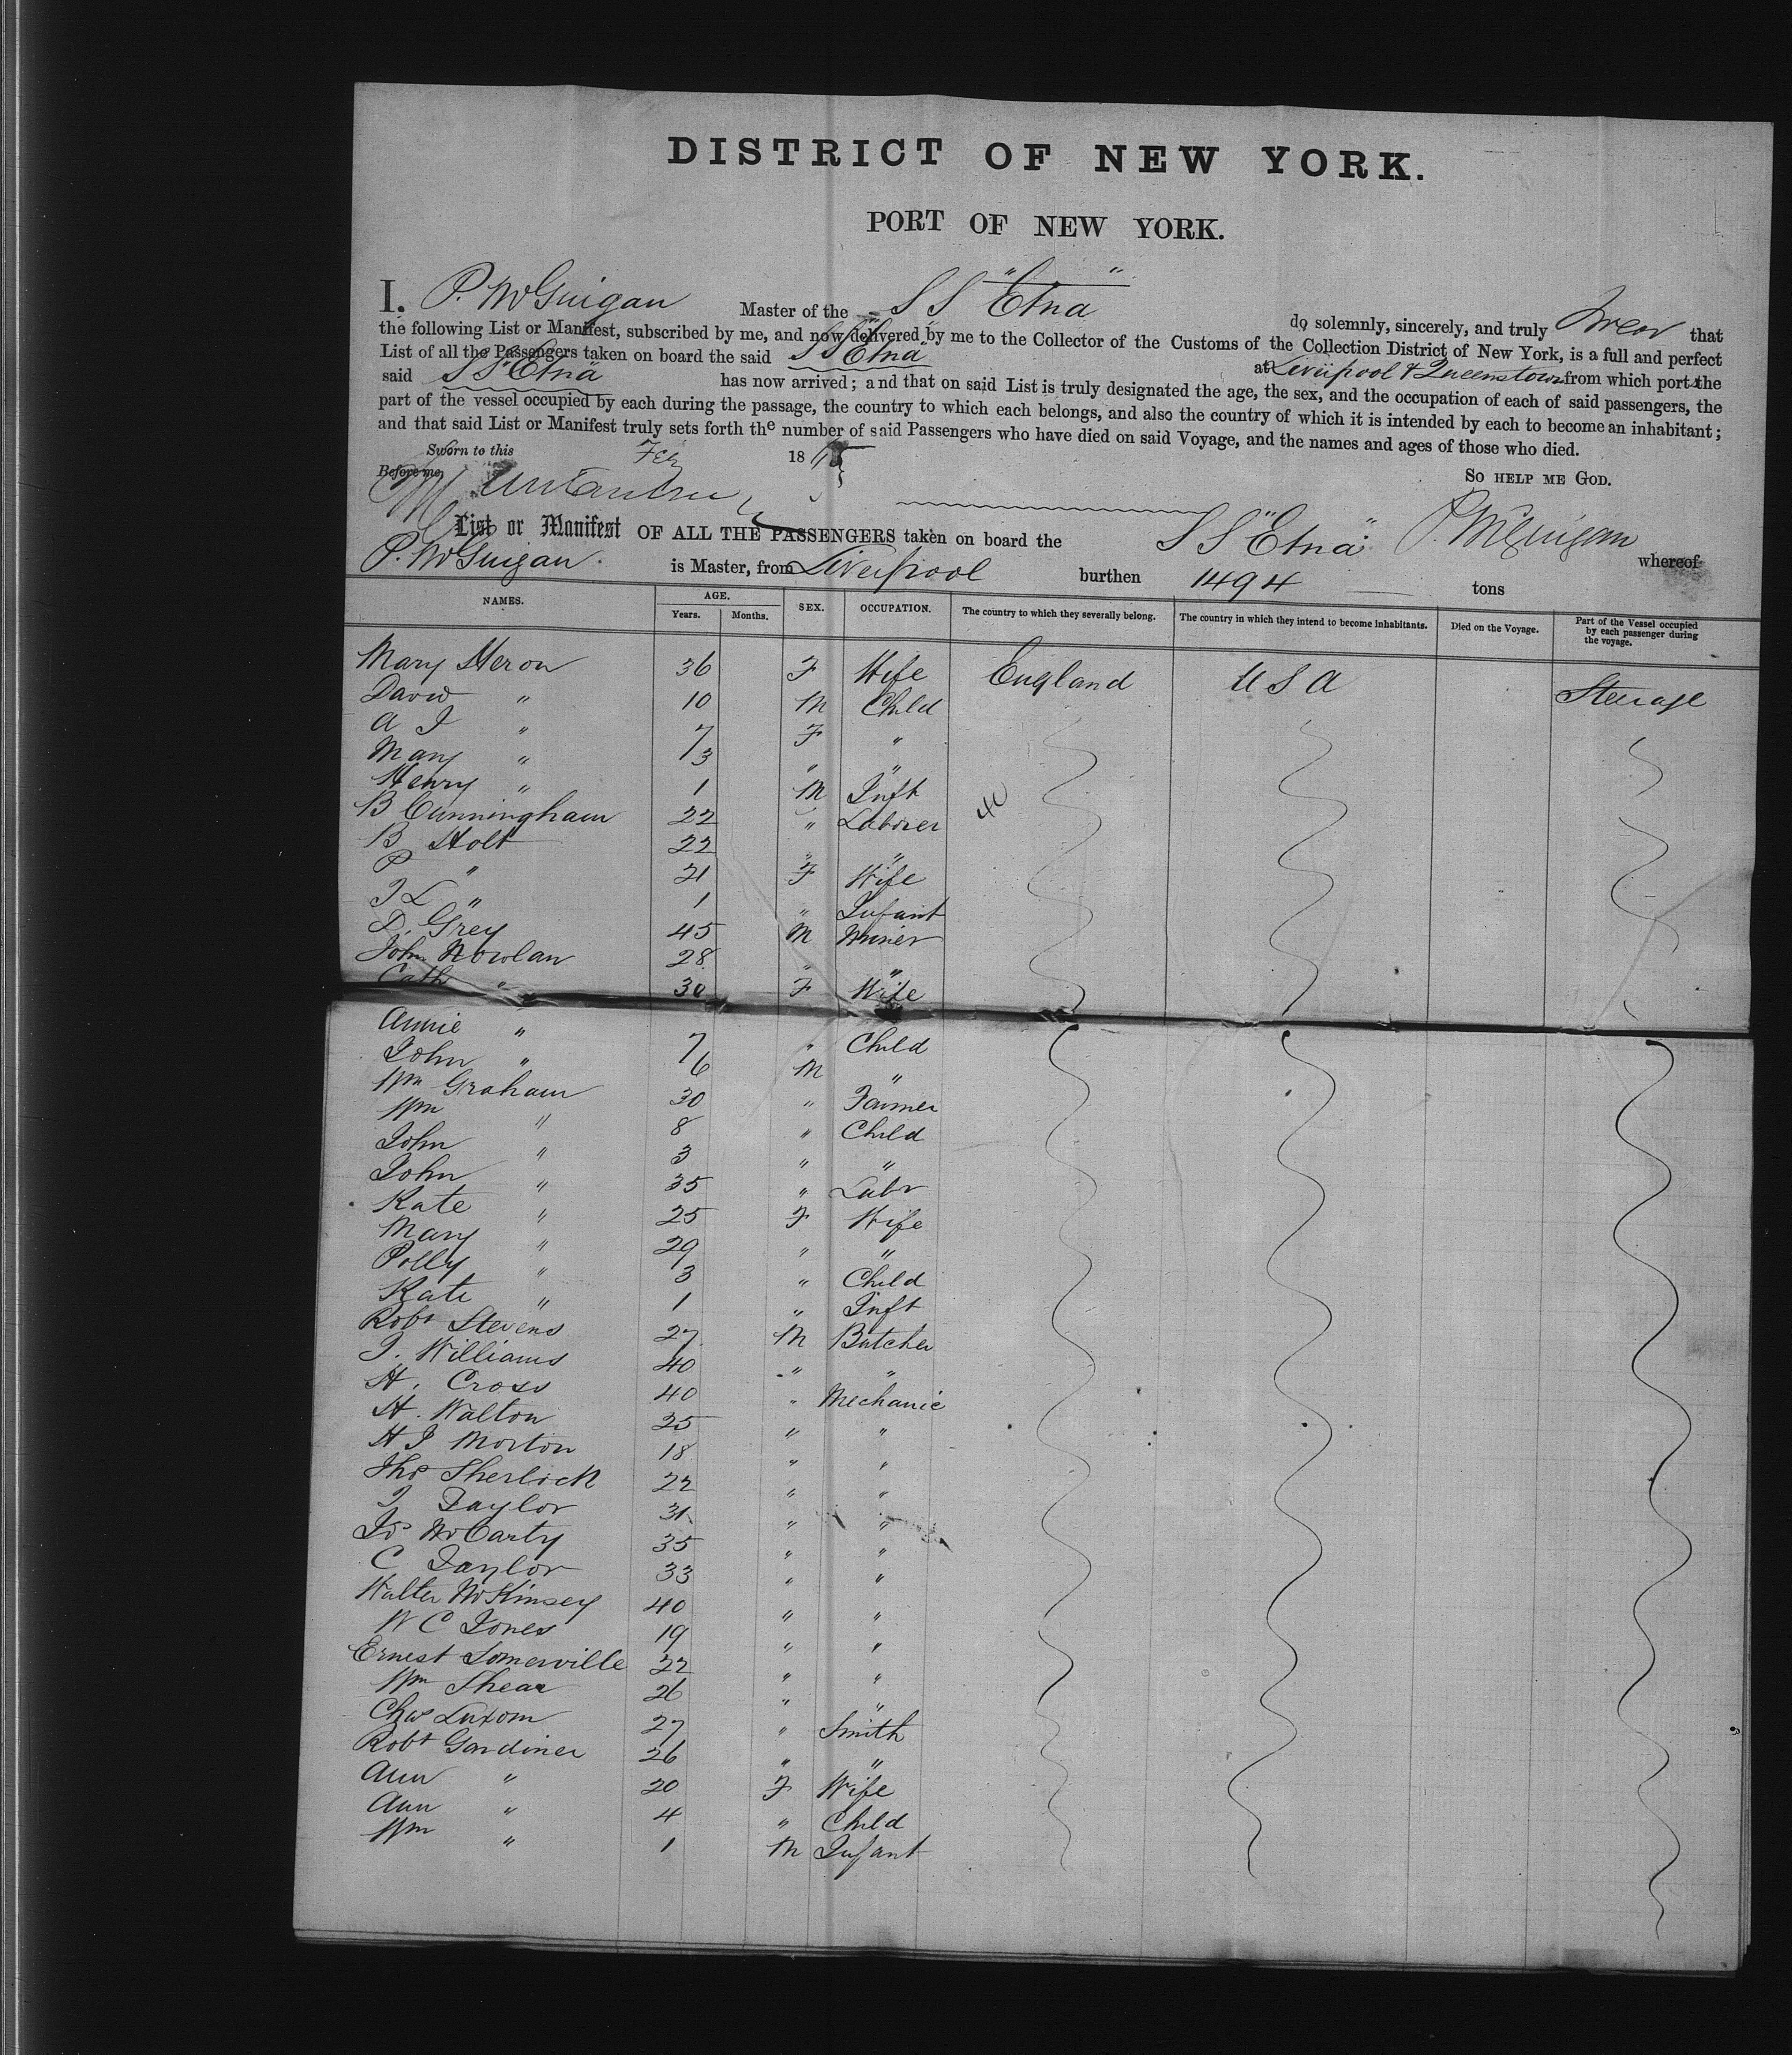 DISTRICT OF NEW YORK.
PORT OF NEW YORK.
I, P. McGuigan Master of the S S "Etna" do solemnly, sincerely, and truly Swear that
the following List or Manifest, subscribed by me, and now delivered by me to the Collector of the Customs of the Collection District of New York, is a full and perfect
List of all the Passengers taken on board the said S S "Etna" at Liverpool & Queenstown from which port the
said S S "Etna" has now arrived; and that on said List is truly designated the age, the sex, and the occupation of each of said passengers, the
part of the vessel occupied by each during the passage, the country to which each belongs, and also the country of which it is intended by each to become an inhabitant;
and that said List or Manifest truly sets forth the number of said Passengers who have died on said Voyage, and the names and ages of those who died.
Sworn to this Feb 18
Before me, SO HELP ME GOD.
List or Manifest OF ALL THE PASSENGERS taken on board the S S "Etna" P. McGuigan whereof
P. McGuigan is Master, from Liverpool burthen 1494 tons
NAMES. AGE. Years. Months. SEX. OCCUPATION. The country to which they severally belong. The country in which they intend to become inhabitants. Died on the Voyage. Part of the Vessel occupied by each passenger during the voyage.
Mary Heron 36 F Wife England U S A Steerage
David " 10 M Child
A J " 7 F "
Mary " 3 " "
Henry " 1 M Inft
B Cunningham 22 " Laborer
B Holt 22 " "
P " 21 F Wife
J L " 1 " Infant
D. Grey 45 M Miner
John Nowlan 28 " "
Cath " 30 F Wife
Annie " 7 " Child
John " 6 M "
Wm Graham 30 " Farmer
Wm " 8 " Child
John " 3 " "
John " 35 " Labr
Kate " 25 F Wife
Mary " 29 " "
Polly " 3 " Child
Kate " 1 " Inft
Robt Stevens 27 M Butcher
J. Williams 40 " "
H. Cross 40 " Mechanic
H. Walton 25 " "
H J Morton 18 " "
Thos Sherlock 22 " "
J Taylor 31 " "
Js McCarty 35 " "
C Taylor 33 " "
Walter McKinsey 40 " "
W C Jones 19 " "
Ernest Somerville 22 " "
Wm Shear 26 " "
Chas Luxom 27 " Smith
Robt Gardiner 26 " "
Ann " 20 F Wife
Ann " 4 " Child
Wm " 1 M Infant